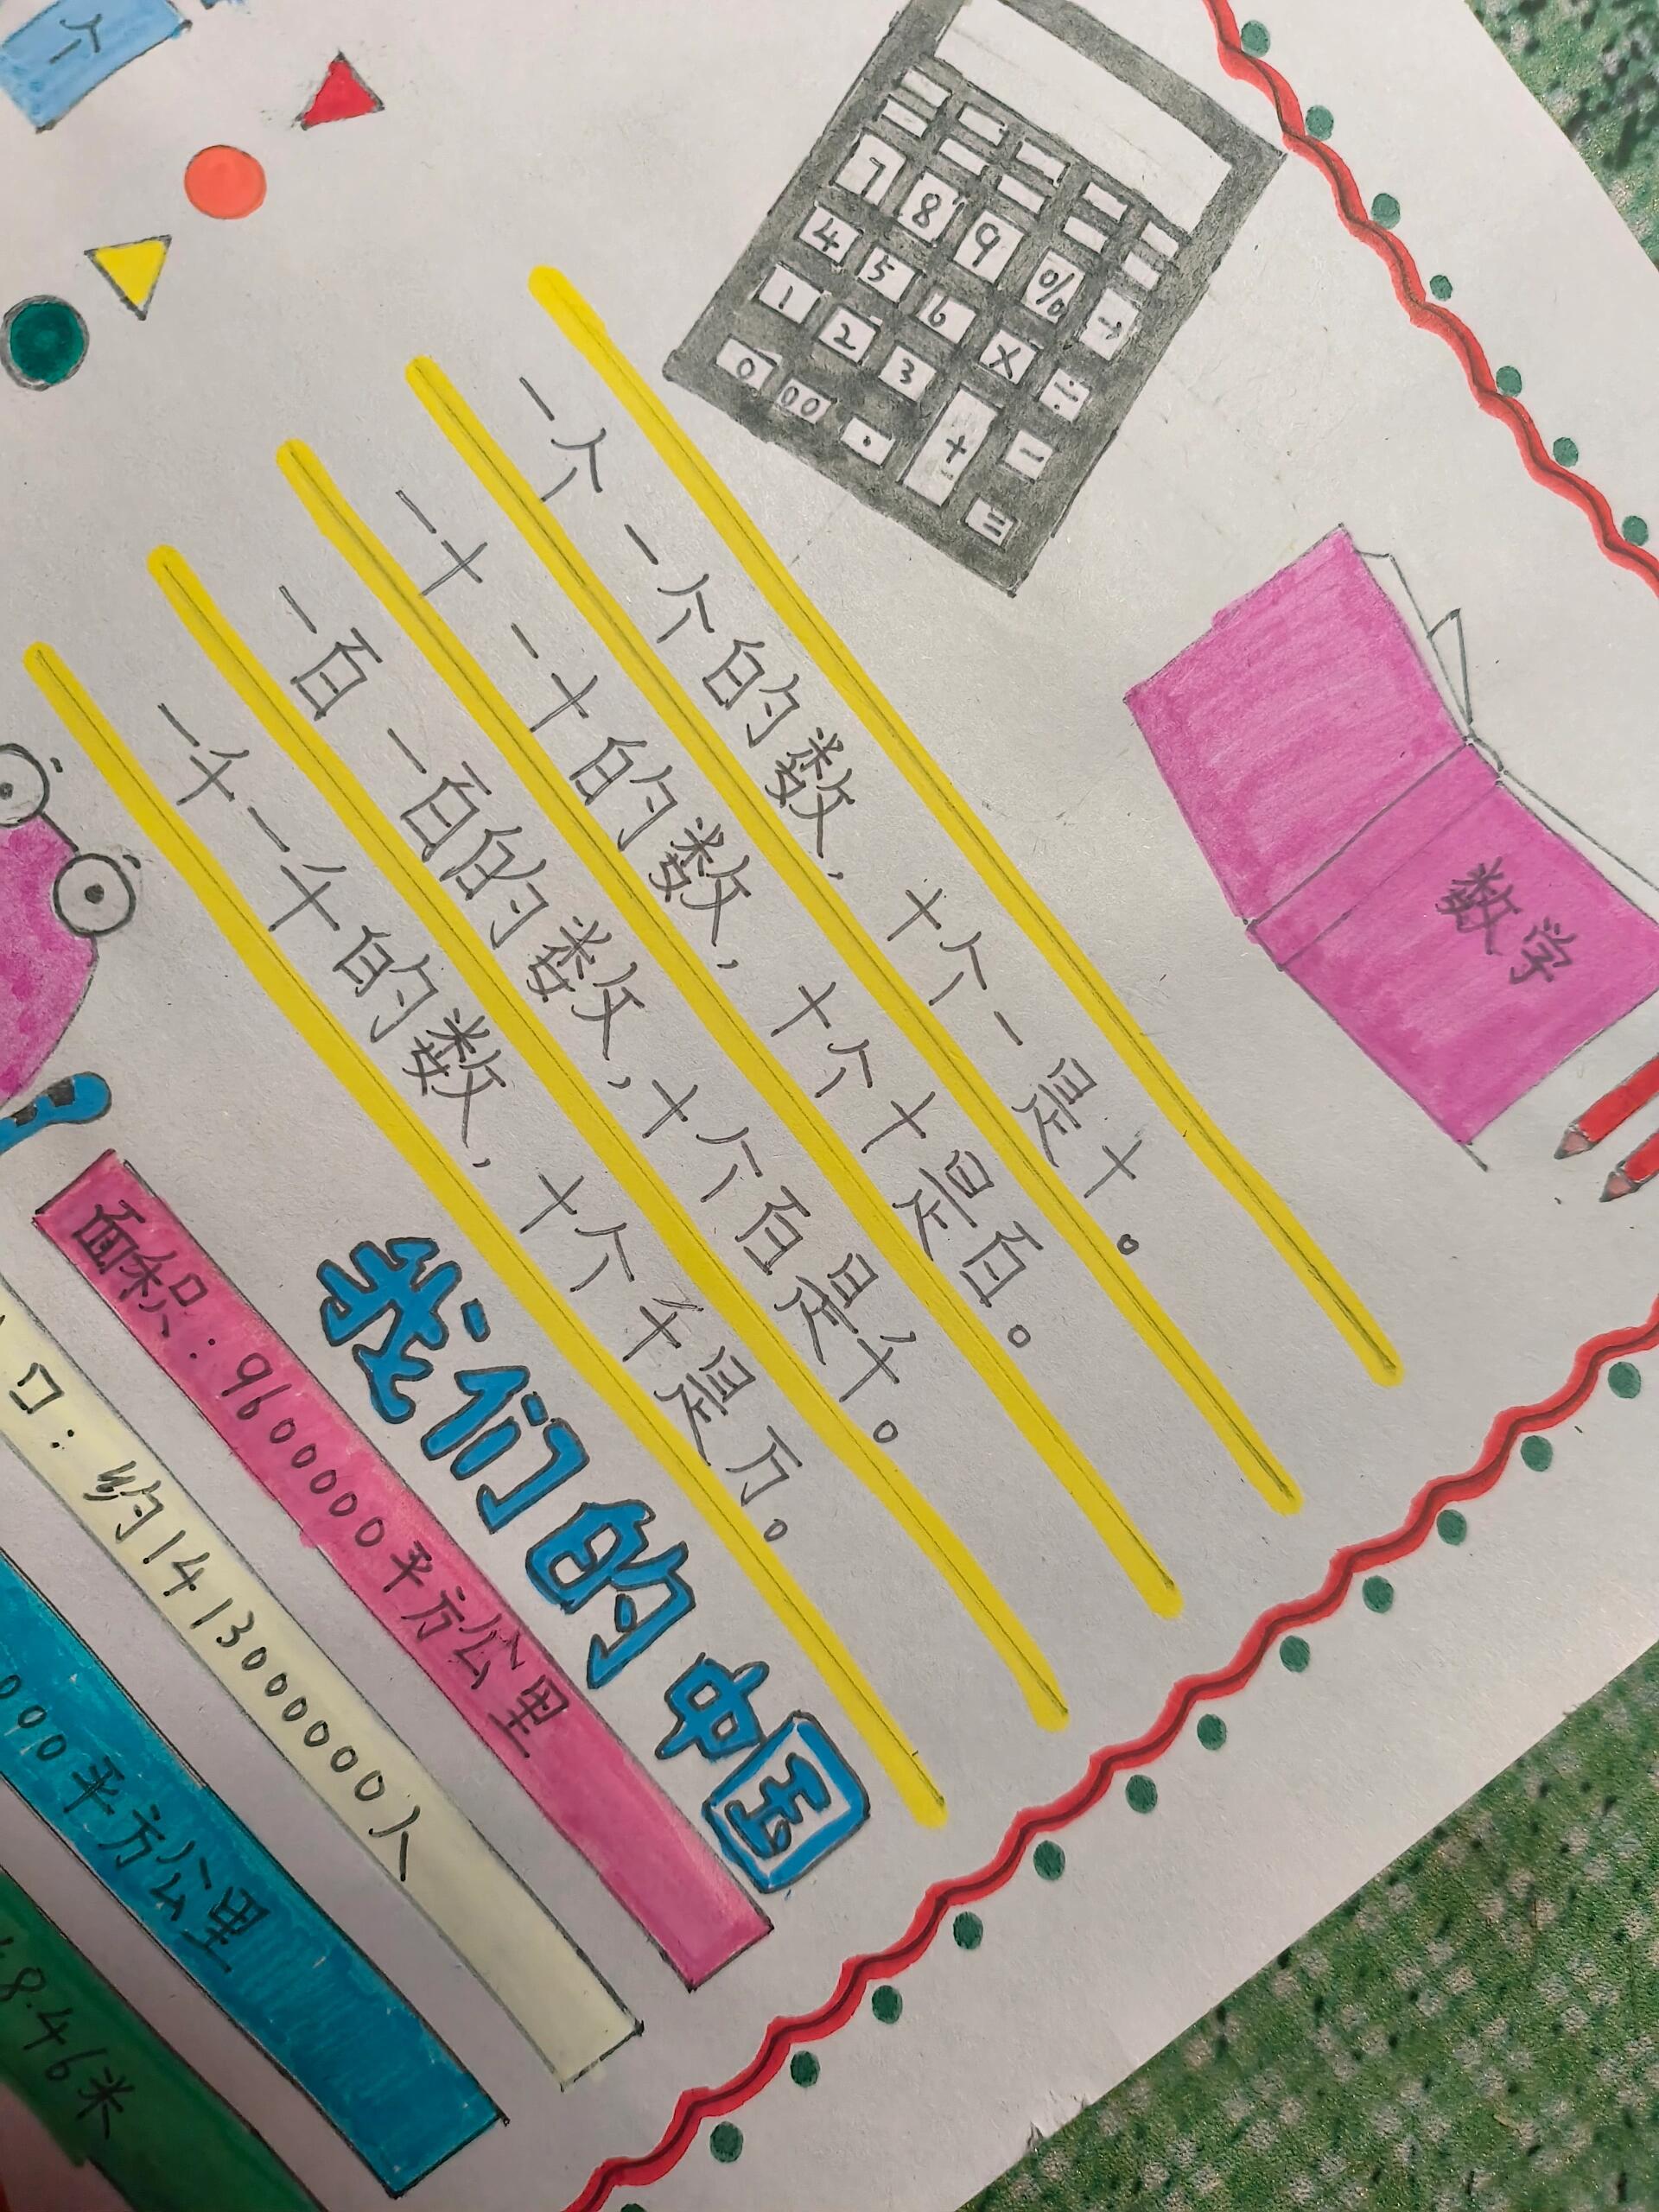 个
7 8 9 % →
4 5 6 × ÷
1 2 3 + −
0 00 . =
数学
一个一个的数，十个一是十。
一十一十的数，十个十是百。
一百一百的数，十个百是千。
一千一千的数，十个千是万。
我们的中国
面积：9600000平方公里
口：约1413000000人
000平方公里
8.46米